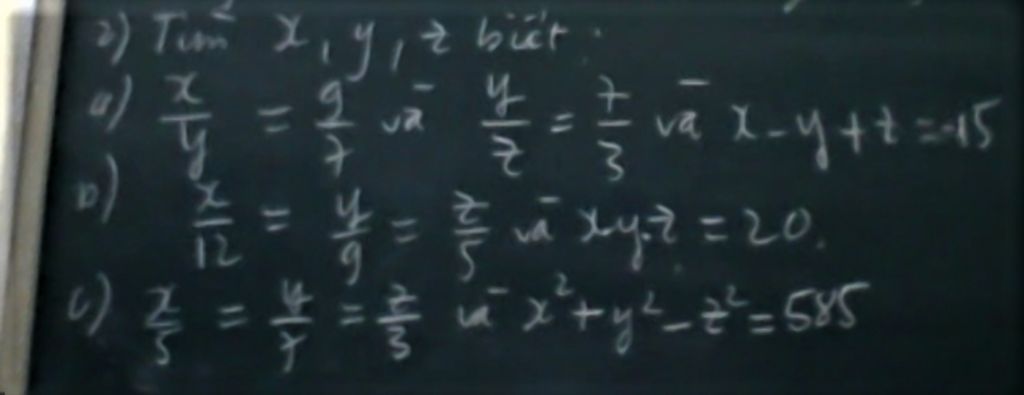 2) Tìm x, y, z biết:
a) x/y = 9/7 và y/z = 7/3 và x - y + z = -15
b) x/12 = y/9 = z/5 và x.y.z = 20.
c) x/5 = y/7 = z/3 và x² + y² - z² = 585